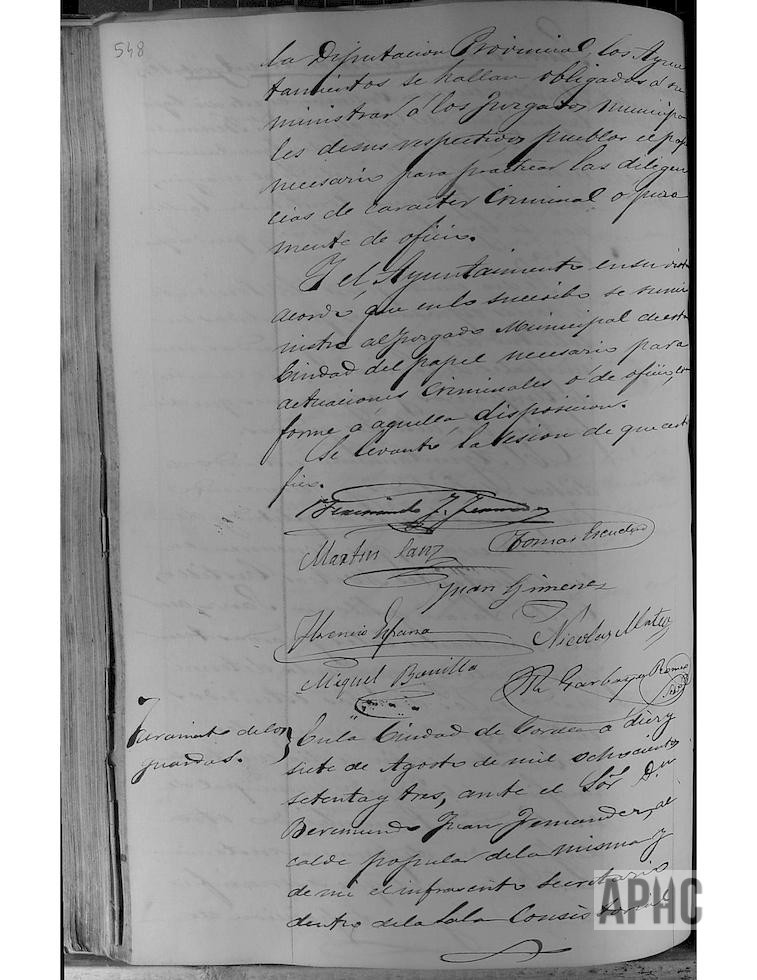 548
la Diputacion Provincial, los Ayun
tamientos se hallan obligados á su
ministrar á los Juzgados municipa
les de sus respectivos pueblos el pap
necesario para practicar las diligen
cias de caracter Criminal o pura
mente de oficio.
Y el Ayuntamiento en su vista
acordó que en lo sucesibo se sumi
nistre al Juzgado Municipal de esta
Ciudad del papel necesario para
actuaciones Criminales ó de oficio, con
forme á aquella disposicion.
Se levantó la sesion de que certi
fico.
Beremundo J. Fernandez
Martin Sanz
Tomas Escudero
Juan Gimenez
Florencio España
Nicolas Mateo
Miguel Bonilla
Garbayo Romeo
Juramento de los
guardas.
En la Ciudad de Corella á diez y
siete de Agosto de mil ochocientos
setenta y tres, ante el Sor. Dn.
Beremundo Juan Fernandez, al
calde popular de la misma y
de mi el infrascrito secretario
dentro de la Sala Consistorial
APHC